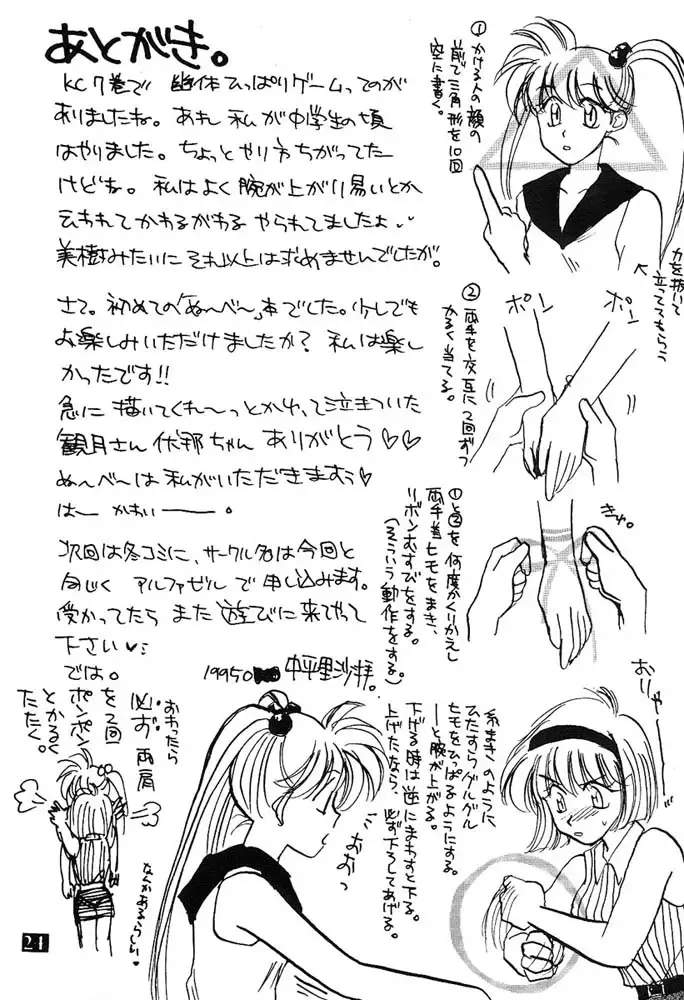 あとがき。
KC7巻で 幽体ひっぱりゲームってのが
ありましたね。あれ 私が中学生の頃
はやりました。ちょっとやり方ちがってた
けどね。私はよく腕が上がり易いとか
云われてかわるがわる やられてましたよ
美樹みたいに それ以上は求めませんでしたが。
さて。初めての「ぬ〜べ〜」本でした。少しでも
お楽しみいただけましたか？私は楽し
かったです!!
急に 描いてくれ〜っとかいって泣きついた
観月さん 伊那ちゃん ありがとう♡♡
ぬ〜べ〜は私がいただきますぅ♡
はー かわいー。
次回は冬コミに、サークル名は今回と
同じく アルファゼル で申し込みます。
受かってたら また 遊びに来てやって
下さい
では。
19950 中平里沙
①かける人の顔の
前で三角形を10回
空に書く。
力を抜いて
立っててもらう
②両手を交互に7回ずつ
かるく当てる。
ポン
ポン
①と②を何度かくりかえし
両手首ヒモをまき、
リボンむすびをする。
(そういう動作をする。)
きゅ。
おりゃー
糸まきのように
ひたすらグルグル
ヒモをひっぱるようにする。
ーと腕が上がる。
下げる時は逆にまわすと下る。
上げたなら、必ず下ろしてあげる。
おおっ
おわったら
必ず両肩
を7回
ポンポン
とかるく
たたく。
なんかあるらしい
24